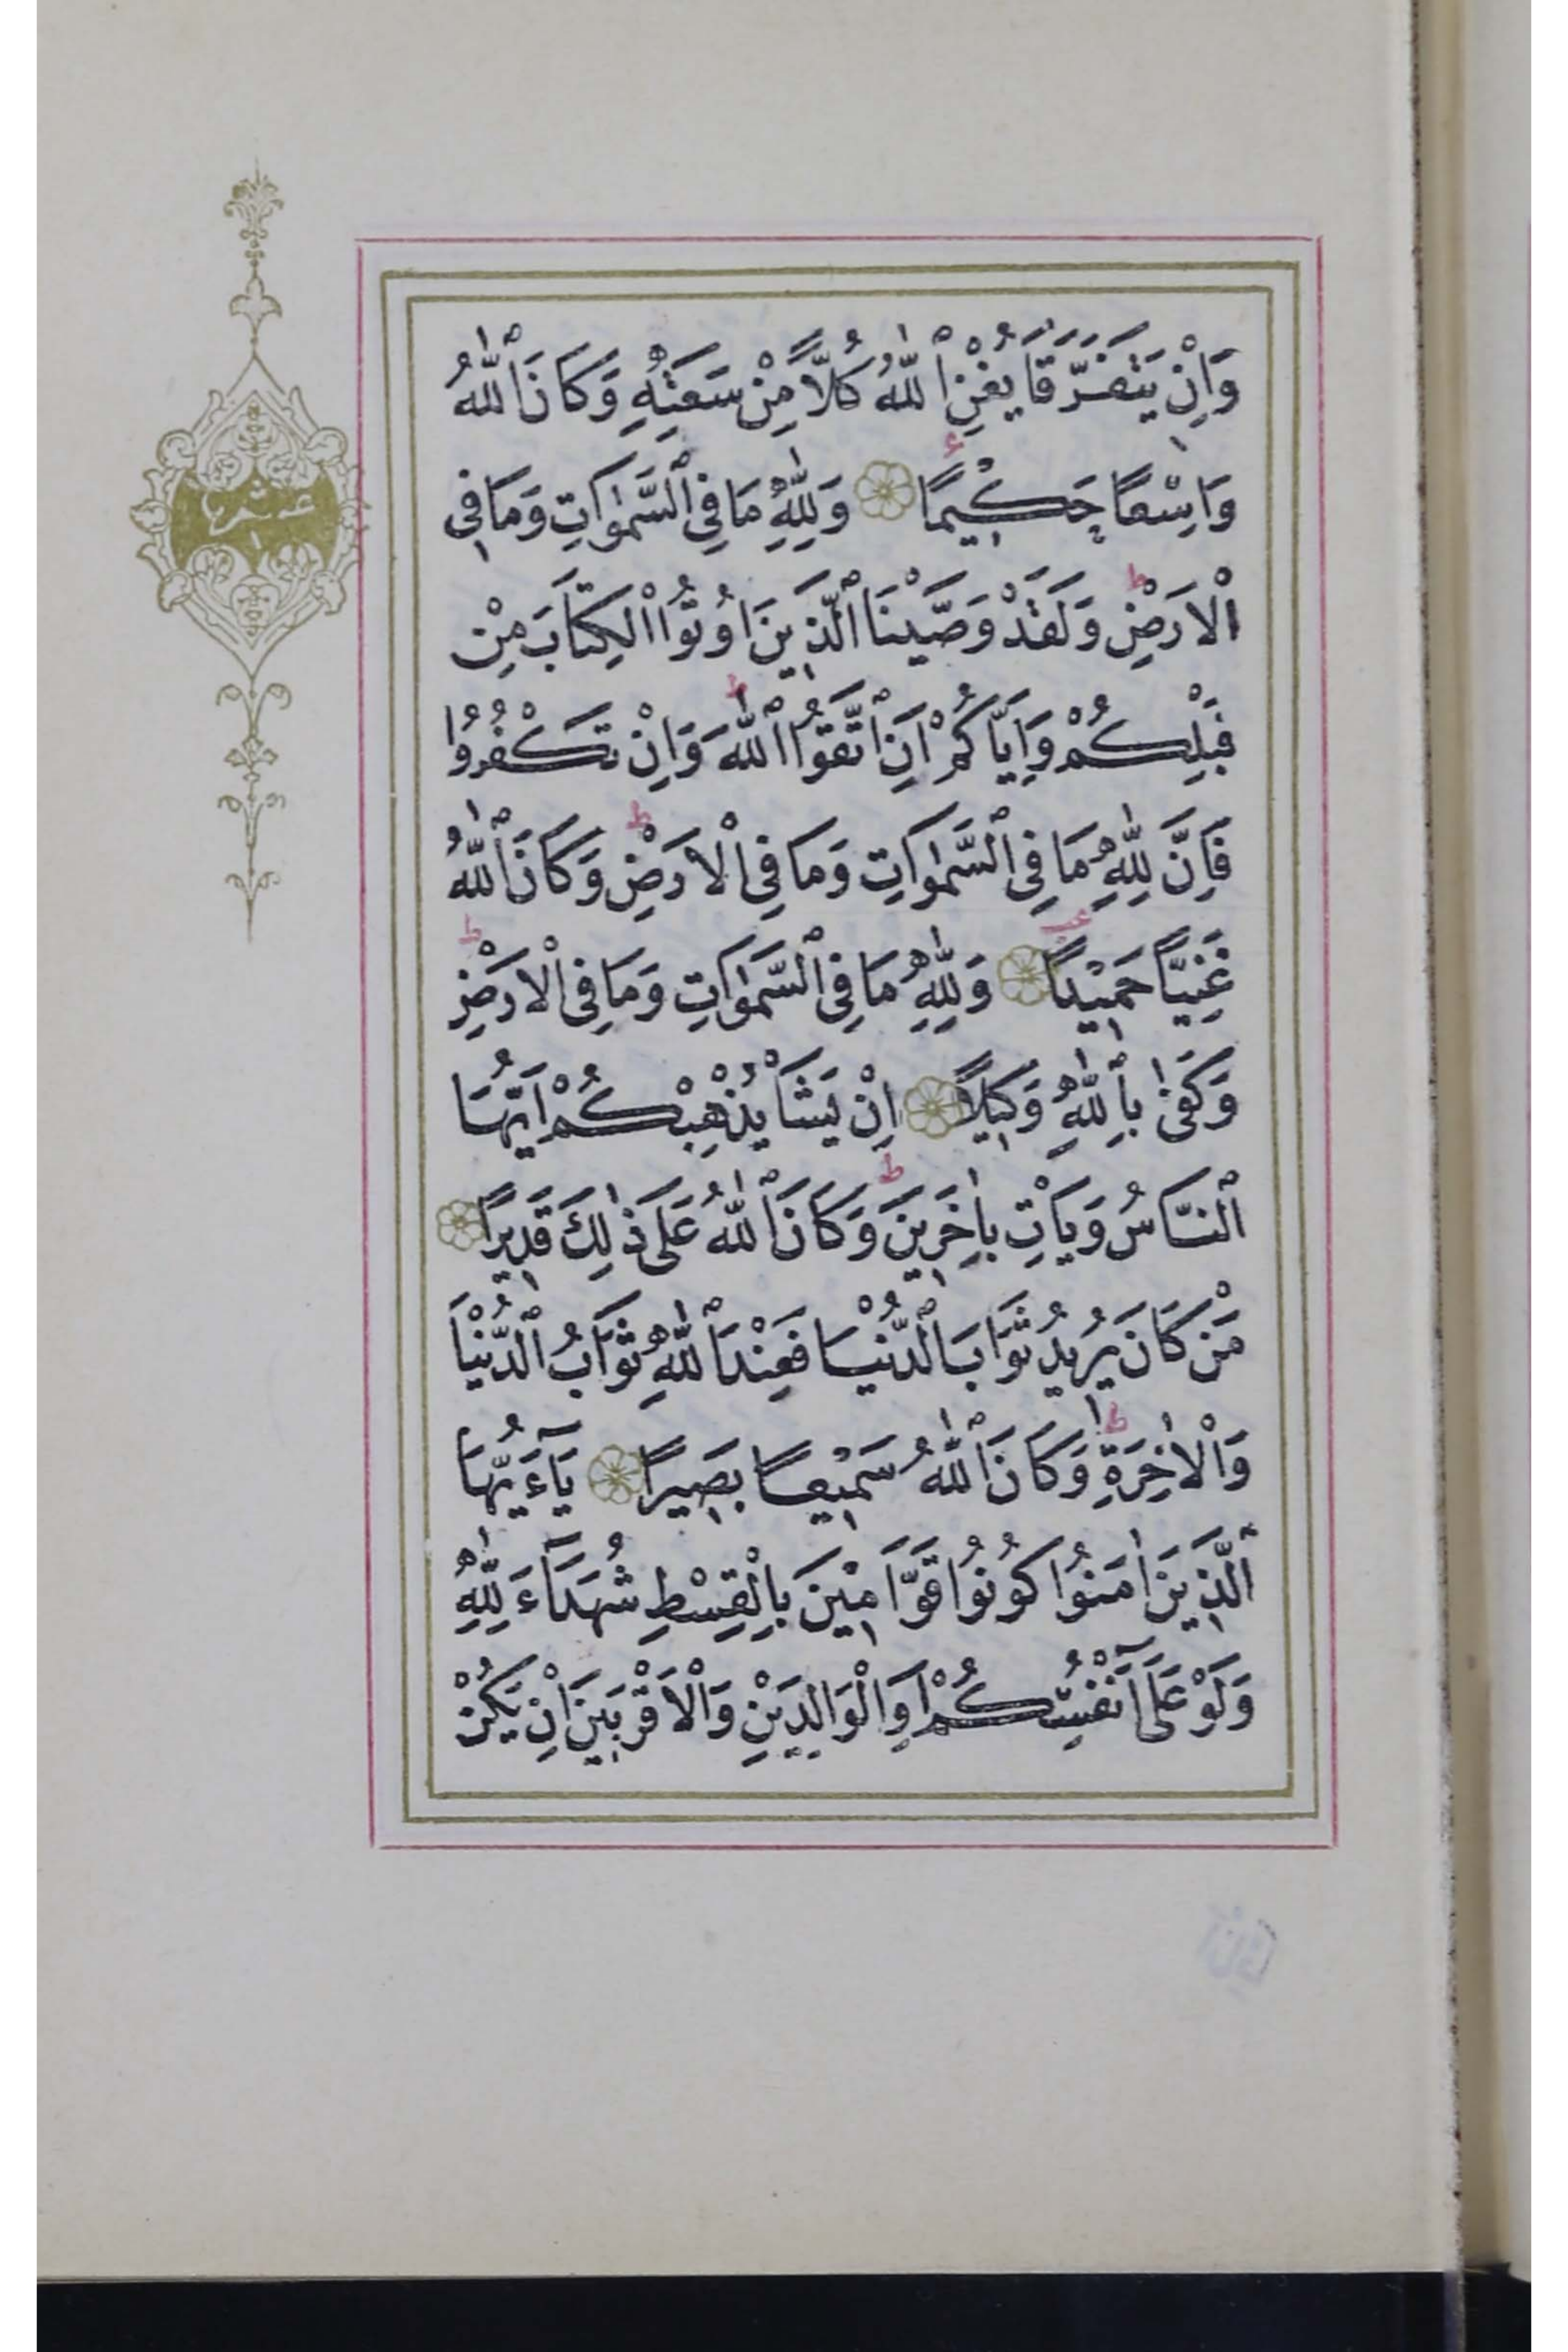 وَاِنْ يَتَفَرَّقَا يُغْنِ ٱللّٰهُ كُلًّا مِنْ سَعَتِهِ وَكَانَ ٱللّٰهُ
وَاسِعًا حَكِيْمًا وَلِلّٰهِ مَا فِي ٱلسَّمٰوَاتِ وَمَا فِي
الْاَرْضِ وَلَقَدْ وَصَّيْنَا ٱلَّذِينَ اُوتُوا الْكِتَابَ مِنْ
قَبْلِكُمْ وَاِيَّاكُمْ اَنِ ٱتَّقُوا ٱللّٰهَ وَاِنْ تَكْفُرُوا
فَاِنَّ لِلّٰهِ مَا فِي ٱلسَّمٰوَاتِ وَمَا فِي الْاَرْضِ وَكَانَ ٱللّٰهُ
غَنِيًّا حَمِيْدًا وَلِلّٰهِ مَا فِي ٱلسَّمٰوَاتِ وَمَا فِي الْاَرْضِ
وَكَفٰى بِٱللّٰهِ وَكِيلًا اِنْ يَشَأْ يُذْهِبْكُمْ اَيُّهَا
ٱلنَّاسُ وَيَأْتِ بِاٰخَرِينَ وَكَانَ ٱللّٰهُ عَلَى ذٰلِكَ قَدِيرًا
مَنْ كَانَ يُرِيدُ ثَوَابَ ٱلدُّنْيَا فَعِنْدَ ٱللّٰهِ ثَوَابُ ٱلدُّنْيَا
وَالْاٰخِرَةِ وَكَانَ ٱللّٰهُ سَمِيْعًا بَصِيرًا يَآءَيُّهَا
ٱلَّذِينَ اٰمَنُوا كُونُوا قَوَّامِيْنَ بِالْقِسْطِ شُهَدَآءَ لِلّٰهِ
وَلَوْ عَلَىٓ اَنْفُسِكُمْ اَوِ الْوَالِدَيْنِ وَالْاَقْرَبِينَ اِنْ يَكُنْ